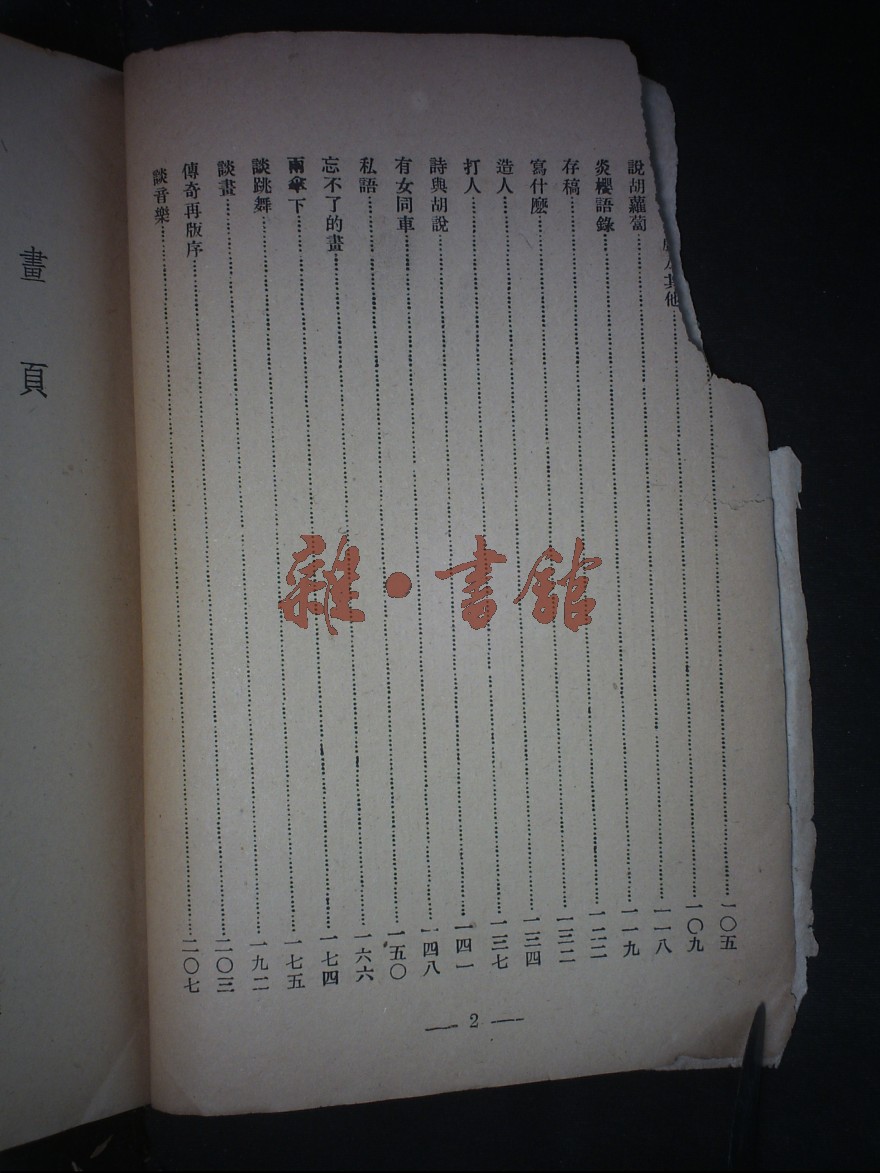 一〇五
其他……一〇九
說胡蘿蔔……一一八
炎櫻語錄……一一九
存稿……一二二
寫什麼……一三二
造人……一三四
打人……一三七
詩與胡說……一四一
有女同車……一四八
私語……一五〇
忘不了的畫……一六六
雨傘下……一七四
談跳舞……一七五
談畫……一九二
傳奇再版序……二〇三
談音樂……二〇七
— 2 —
畫頁
雜·書館